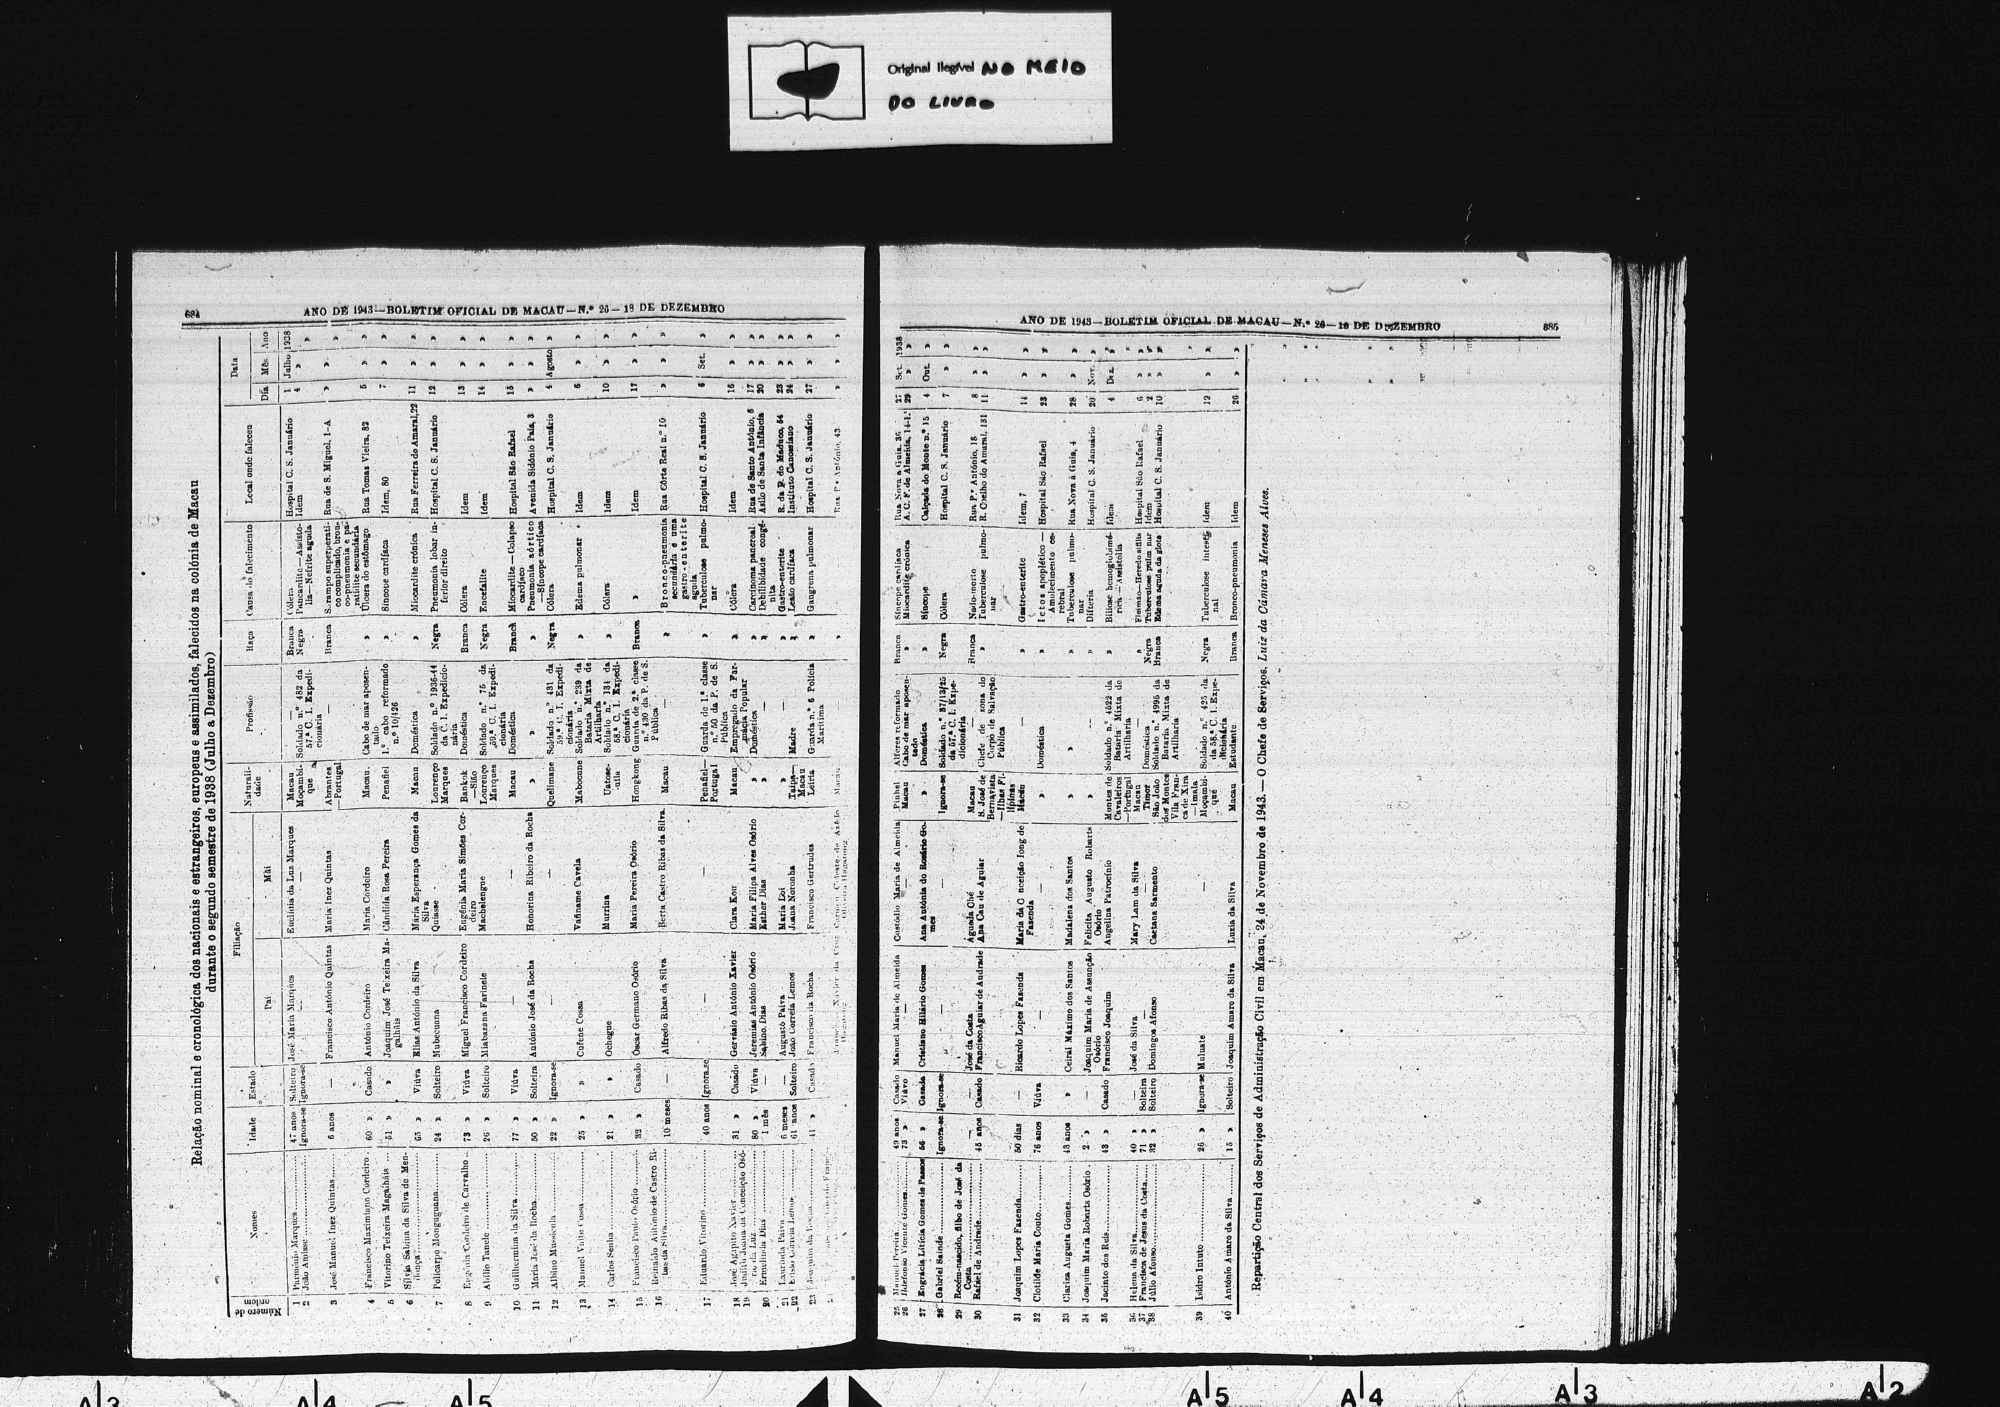 Original Ilegível NO MEIO
DO LIVRO
684
ANO DE 1943—BOLETIM OFICIAL DE MACAU—N.º 26—18 DE DEZEMBRO
Relação nominal e cronológica dos nacionais e estrangeiros, europeus e assimilados, falecidos na colónia de Macau
durante o segundo semestre de 1938 (Julho a Dezembro)
Número de ordem | Nomes | Idade | Estado | Filiação: Pai | Mãi | Naturalidade | Profissão | Raça | Causa do falecimento | Local onde faleceu | Data: Dia | Mês | Ano
1 | Marques | 47 anos | Solteiro | José Maria Marques | da Luz Marques | Macau | — | Branca | Cólera | Hospital C. S. Januário | 1 | Julho | 1938
2 | João | Ignora-se | Ignora-se | — | — | Moçambique | Soldado n.º 482 da 57.ª C. I. Expedicionária | Negra | —Nefrite aguda | Idem | 4 | » | »
3 | José Manuel Inez Quintas | 6 anos | — | Francisco António Quintas | Maria Inez Quintas | Abrantes—Portugal | — | Branca | Sarampo complicado, bronco-pneumonia secundária | Rua de S. Miguel, 1-A | » | » | »
4 | Francisco Maximiano Cordeiro | 60 » | Casado | António Cordeiro | Maria Cordeiro | Macau | Cabo de mar aposentado | » | Úlcera do estômago | Rua Tomás Vieira, 82 | 5 | » | »
5 | Vitorino Teixeira Magalhãis | 51 » | » | Joaquim José Teixeira Magalhãis | Cândida Rosa Pereira | Penafiel | 1.º cabo reformado n.º 10/426 | » | Síncope cardíaca | Idem, 80 | 7 | » | »
6 | Sílvia Sabina da Silva de Mendonça | 65 » | Viúva | Elias António da Silva | Maria Esperança Gomes da Silva | Macau | Doméstica | » | Miocardite crónica | Rua Ferreira do Amaral, 22 | 11 | » | »
7 | Policarpo Monguguana | 24 » | Solteiro | Mubecuana | Quiasse | Lourenço Marques | Soldado n.º 1936-44 da C. I. Expedicionária | Negra | Pneumonia lobar inferior direito | Hospital C. S. Januário | 12 | » | »
8 | Eugénia Cordeiro de Carvalho | 73 » | Viúva | Miguel Francisco Cordeiro | Eugénia Maria Simões Cordeiro | Bankok—Sião | Doméstica | Branca | Cólera | Idem | 13 | » | »
9 | Abílio Tande | 26 » | Solteiro | Miabazana Farinele | Machalengue | Lourenço Marques | Soldado n.º 75 da 59.ª C. I. Expedicionária | Negra | Encefalite | Idem | 14 | » | »
10 | Guilhermina da Silva | 77 » | Viúva | — | — | Macau | Doméstica | Branca | Miocardite—Colapso cardíaco | Hospital São Rafael | 15 | » | »
11 | Maria José da Rocha | 50 » | Solteira | António José da Rocha | Honorina Ribeiro da Rocha | » | — | » | Pneumonia aórtico—Síncope cardíaca | Avenida Sidónio Pais, 3 | » | » | »
12 | Albino | 22 » | Ignora-se | — | — | Quelimane | Soldado n.º 431 da 59.ª C. I. Expedicionária | Negra | Cólera | Hospital C. S. Januário | 4 | Agosto | »
13 | Manuel Cossa | 25 » | » | Cufene Cossa | Vafiname Cavela | Maboonne | Soldado n.º 239 da Bataria Mixta de Artilharia | » | Edema pulmonar | Idem | 6 | » | »
14 | Carlos Senha | 21 » | » | Ochegue | Murrina | | Soldado n.º 131 da 58.ª C. I. Expedicionária | » | Cólera | Idem | 10 | » | »
15 | Francisco Paulo Osório | 32 » | Casado | Óscar Germano Osório | Maria Pereira Osório | Hongkong | Guarda de 2.ª classe n.º 130 da P. de S. Pública | Branca | » | Idem | 17 | » | »
16 | Reinaldo António de Castro Ribas da Silva | 10 meses | — | Alfredo Ribas da Silva | Berta Castro Ribas da Silva | Macau | — | » | Bronco-pneumonia secundária e uma gastro-enterite aguda | Rua Côrte Real n.º 10 | » | » | »
17 | Eduardo Vitorino | 40 anos | Ignora-se | — | — | Penafiel—Portugal | Guarda de 1.ª classe n.º 50 da P. de S. Pública | » | Tuberculose pulmonar | Hospital C. S. Januário | 6 | Set. | »
18 | José Agapito Xavier | 31 » | Casado | Gervásio António Xavier | Clara Kou | Macau | Empregado da Farmácia Popular | » | Cólera | Idem | 16 | » | »
19 | Joana da Conceição Osório da Luz | 80 » | Viúva | Jeremias António Osório | Maria Filipa Alves Osório | » | Doméstica | » | Carcinoma pancreal | Rua de Santo António, 6 | 17 | » | »
20 | Ermelinda Dias | 1 mês | — | Sabino Dias | Esther Dias | » | — | » | Debilidade congénita | Asilo de Santa Infância | 20 | » | »
21 | Laurinda Paiva | 6 meses | — | Augusto Paiva | Maria Loi | » | — | » | Gastro-enterite | R. da P. do Maduco, 54 | 23 | » | »
22 | Correia Lemos | 61 anos | Solteiro | João Correia Lemos | Joana Noronha | Taipa—Macau | Madre | » | Lesão cardíaca | Instituto Canossiano | 24 | » | »
23 | Joaquim da Rocha | 41 » | Casado | Francisco da Rocha | Francisca Gertrudes | Leiria | Guarda n.º 6 Polícia Marítima | » | Gangrena pulmonar | Hospital C. S. Januário | 27 | » | »
Xavier da Cruz | Macau | Rua P.e António, 43
ANO DE 1943—BOLETIM OFICIAL DE MACAU—N.º 26—18 DE DEZEMBRO
885
25 | Manuel Pereira | 49 anos | Casado | Manuel Maria de Almeida | Custódio Maria de Almeida | Pinhel | Alferes reformado | Branca | Síncope cardíaca | Rua Nova à Guia, 36 | 27 | Set. | 1938
26 | Ildefonso Vicente Gomes | 73 » | Viúvo | — | — | Macau | Cabo de mar aposentado | » | Miocardite crónica | A. C. F. de Almeida, 14-1.º | 29 | » | »
27 | Engrácia Letícia Gomes de Passos | 56 » | Casada | Cristiano Hilário Gomes | Ana Antónia do Rosário Gomes | » | Doméstica | » | Síncope | Calçada do Monte n.º 15 | 4 | Out. | »
28 | Gabriel Sainde | Ignora-se | Ignora-se | — | — | Ignora-se | Soldado n.º 87/12/25 da 57.ª C. I. Expedicionária | Negra | Cólera | Hospital C. S. Januário | 7 | » | »
29 | Recém-nascido, filho de José da Costa | — | — | José da Costa | Aguada Ché | Macau | | Branca | Nado-morto | Rua P.e António, 18 | 8 | » | »
30 | Rafael de Andrade | 45 anos | Casado | Francisco Aguiar de Andrade | Ana Cau de Aguiar | S. José de Bernavista—Ilhas Filipinas | Chefe de zona do Corpo de Salvação Pública | » | Tuberculose pulmonar | R. Coelho do Amaral, 131 | 11 | » | »
31 | Joaquim Lopes Fazenda | 50 dias | — | Ricardo Lopes Fazenda | Maria da Conceição Iong de Fazenda | Macau | — | » | Gastro-enterite | Idem, 7 | 14 | » | »
32 | Clotilde Maria Couto | 76 anos | Viúva | — | — | » | Doméstica | » | Ictos apoplético—Amolecimento cerebral | Hospital São Rafael | 23 | » | »
33 | Clariza Augusta Gomes | 43 anos | » | Ceiral Máximo dos Santos | Madalena dos Santos | » | » | » | Tuberculose pulmonar | Rua Nova à Guia, 4 | 28 | » | »
34 | Joaquim Maria Robarts Osório | 2 » | — | Joaquim Maria de Assunção Osório | Felicita Augusto Robarts Osório | » | — | » | Difteria | Hospital C. S. Januário | 20 | Nov. | »
35 | Jacinto dos Reis | 43 » | Casado | Francisco Joaquim | Angelina Patrocínio | Montes de Cavaleiros—Portugal | Soldado n.º 4522 da Bataria Mixta de Artilharia | » | Biliose hemoglobinúrica—Assistolia | Idem | 4 | Dez. | »
36 | Helena da Silva | 40 » | — | José da Silva | Mary Lam da Silva | Macau | — | » | | Hospital São Rafael | 6 | » | »
37 | Francisca de Jesus da Costa | 71 » | Solteira | — | — | Timor | Doméstica | Negra | Tuberculose pulmonar | Idem | 2 | » | »
38 | Júlio Afonso | 32 » | Solteiro | Domingos Afonso | Caetana Sarmento | São João dos Montes Vila Franca de Xira | Soldado n.º 4995 da Bataria Mixta de Artilharia | Branca | Edema aguda da glote | Hospital C. S. Januário | 10 | » | »
39 | Isidro Intuto | 26 » | Ignora-se | Muluate | — | —Imala Moçambique | Soldado n.º 425 da 58.ª C. I. Expedicionária | Negra | Tuberculose intestinal | Idem | 19 | » | »
40 | António Amaro da Silva | 15 » | Solteiro | Joaquim Amaro da Silva | Luzia da Silva | Macau | Estudante | Branca | Bronco-pneumonia | Idem | 26 | » | »
Repartição Central dos Serviços de Administração Civil em Macau, 24 de Novembro de 1943.—O Chefe de Serviços, Luiz da Câmara Meneses Alves.
A|3 A|4 A|5 A|5 A|4 A|3 A|2